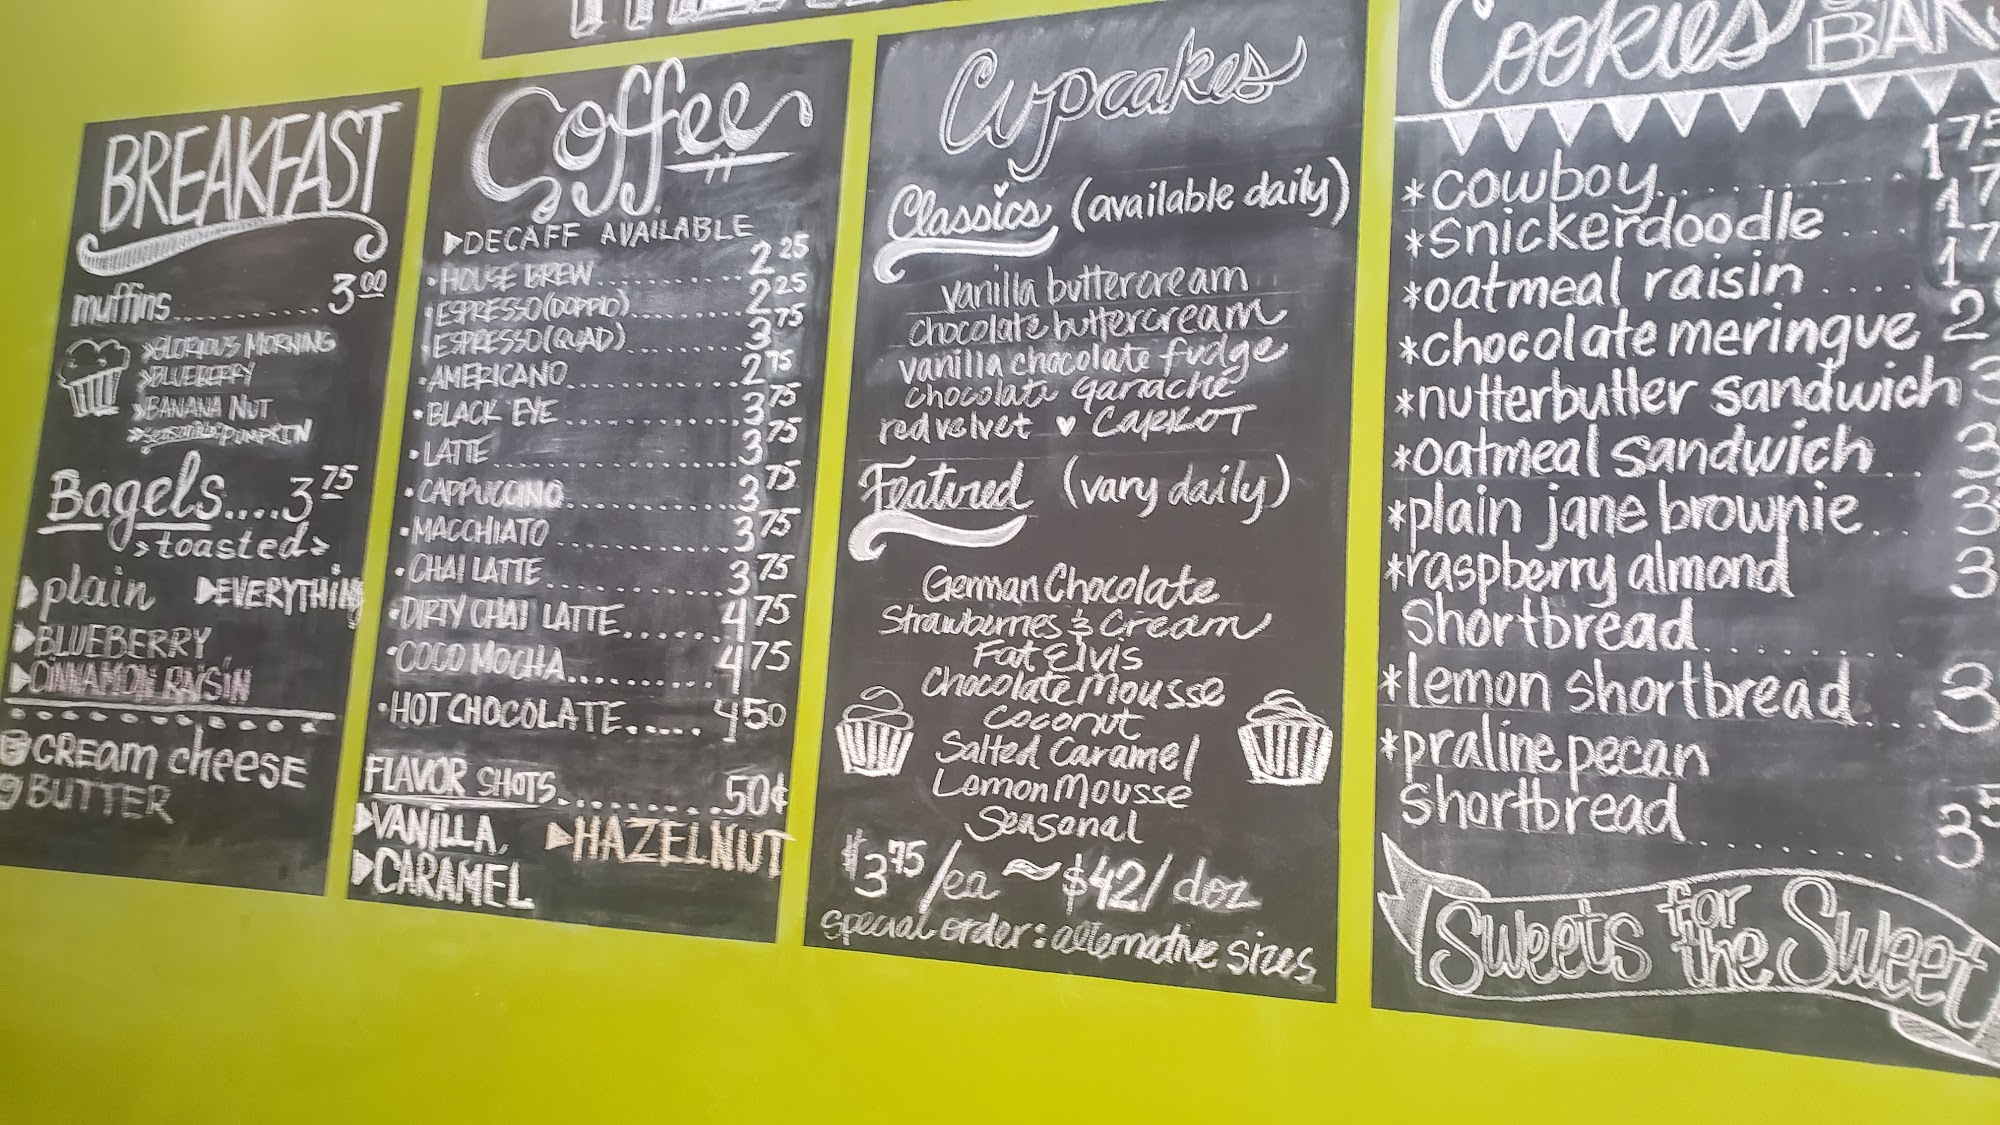 BREAKFAST
muffins.............3.00
»GLORIOUS MORNING
»BLUEBERRY
»BANANA NUT
»seasonal: PUMPKIN
Bagels....3.75
>toasted>
plain EVERYTHING
BLUEBERRY
CINNAMON RAISIN
CREAM cheese
BUTTER
Coffee
DECAFF AVAILABLE
·HOUSE BREW...........2.25
·ESPRESSO(DOPPIO)........2.25
·ESPRESSO(QUAD)..........3.75
·AMERICANO..............2.75
·BLACK EYE..............3.75
·LATTE..................3.75
·CAPPUCCINO.............3.75
·MACCHIATO..............3.75
·CHAI LATTE.............3.75
·DIRTY CHAI LATTE.......4.75
·COCO MOCHA.............4.75
·HOT CHOCOLATE......4.50
FLAVOR SHOTS...........50¢
VANILLA, HAZELNUT
CARAMEL
Cupcakes
Classics (available daily)
vanilla buttercream
chocolate buttercream
vanilla chocolate fudge
chocolate ganache
red velvet ♥ CARROT
Featured (vary daily)
German Chocolate
Strawberries & Cream
Fat Elvis
Chocolate Mousse
Coconut
Salted Caramel
Lemon Mousse
Seasonal
$3.75/ea ~ $42/doz
special order: alternative sizes
Cookies
*cowboy...............1.75
*snickerdoodle....
*oatmeal raisin.....
*chocolate meringue
*nutterbutter sandwich
*oatmeal sandwich..
*plain jane brownie..
*raspberry almond
shortbread...........
*lemon shortbread...
*praline pecan
shortbread...........
Sweets for the Sweet